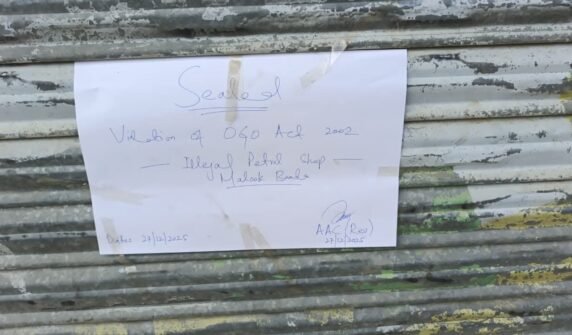 Sealed
Violation of OGO Act 2002
— Illegal Petrol Shop —
Malook
Dated 27/12/2025
AAC (Rev)
27/12/2025